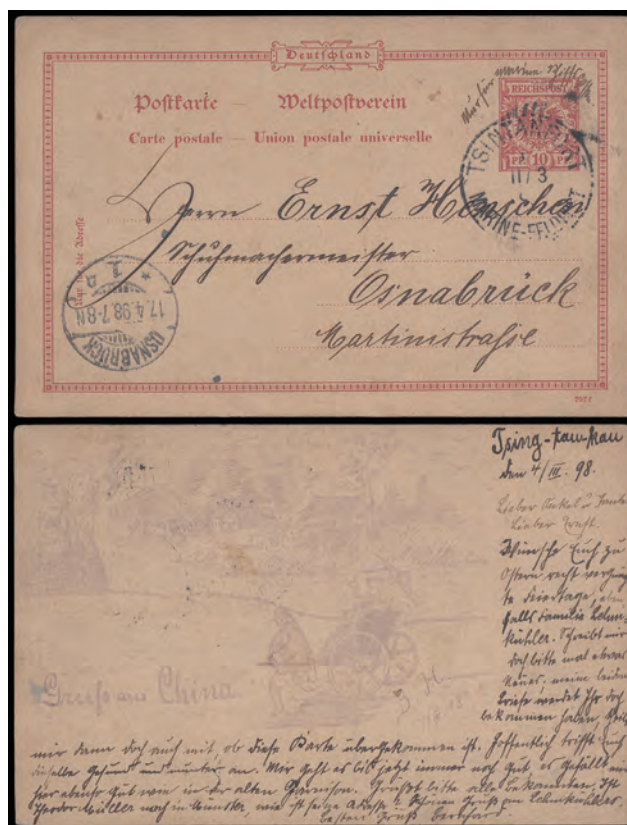 Deutschland
Postkarte — Weltpostverein
Carte postale — Union postale universelle
Nur für die Adresse
REICHSPOST
10
TSINTANFORT
11/3
MARINE-FELDPOST
Herrn Ernst
Schuhmachermeister
Osnabrück
Martinistraße
OSNABRÜCK
1
17.4.98.7-8N
Tsing-tau-kau
den 4/III. 98.
Lieber Onkel u. Tante
Lieber Ernst.
Wünsche Euch zu
Ostern recht vergnüg-
te Feiertage, eben-
falls Familie Lehm-
kuhler. Schreibt mir
doch bitte mal etwas
Neues. meine beiden
Briefe werdet Ihr doch
bekommen haben,
Gruss aus China
mir dann doch auch mit, ob diese Karte übergekommen ist. Hoffentlich trifft Euch
dieselbe gesund und munter an. Mir geht es bis jetzt immer noch gut, es gefällt mir
hier ebenso gut wie in der alten Garnison. Grüßt bitte alle bekannten, Ist
Theodor Müller noch in Münster, wie ist seine Adresse? Schönen Gruß an
besten Gruß